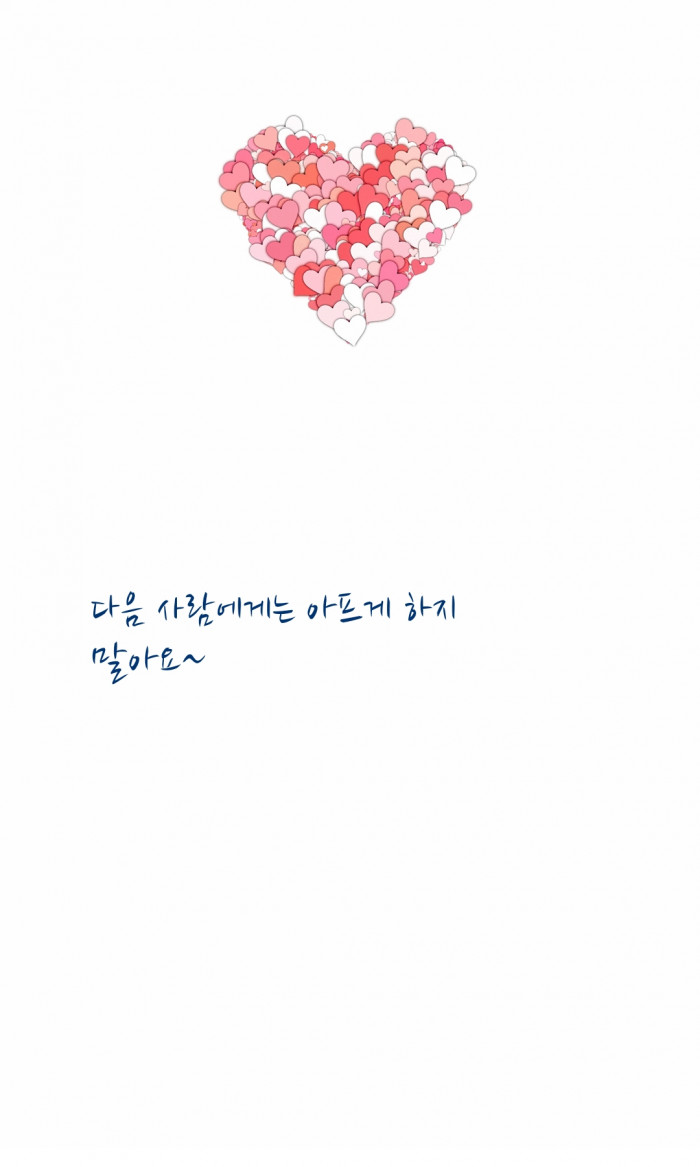 다음 사람에게는 아프게 하지
말아요~